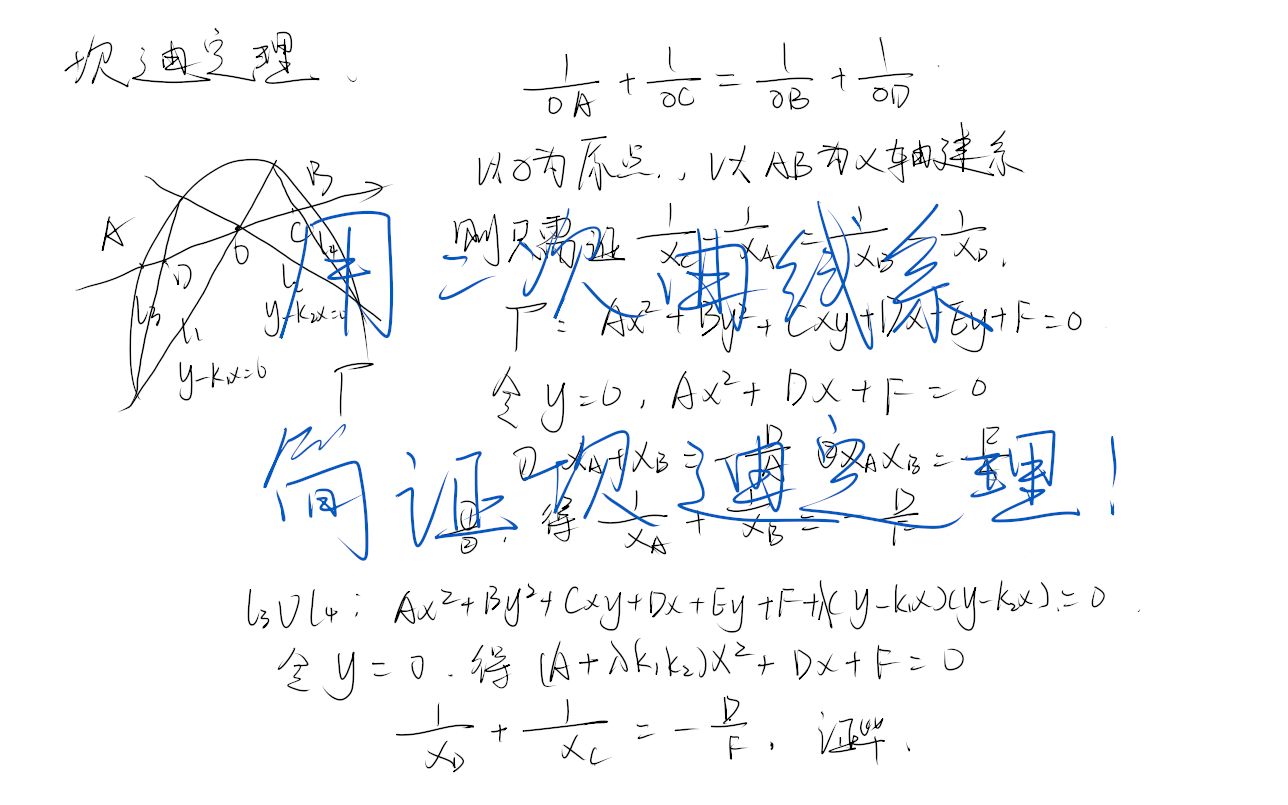 坎迪定理.
1/OA + 1/OC = 1/OB + 1/OD
以O为原点,以AB为x轴建系
则只需证 1/x_C 1/x_A = 1/x_B 1/x_D.
Γ: Ax²+By²+Cxy+Dx+Ey+F=0
令y=0, Ax²+Dx+F=0
① x_A+x_B=-D/A ②x_Ax_B=F/A
①/②, 得 1/x_A + 1/x_B = -D/F
l₃∪l₄: Ax²+By²+Cxy+Dx+Ey+F+λ(y-k₁x)(y-k₂x)=0.
令y=0.得(A+λk₁k₂)x²+Dx+F=0
1/x_D + 1/x_C = -D/F, 证毕.
A
B
C
D
O
l₁
l₂
l₃
l₄
y-k₁x=0
y-k₂x=0
Γ
用二次曲线系
简证坎迪定理!